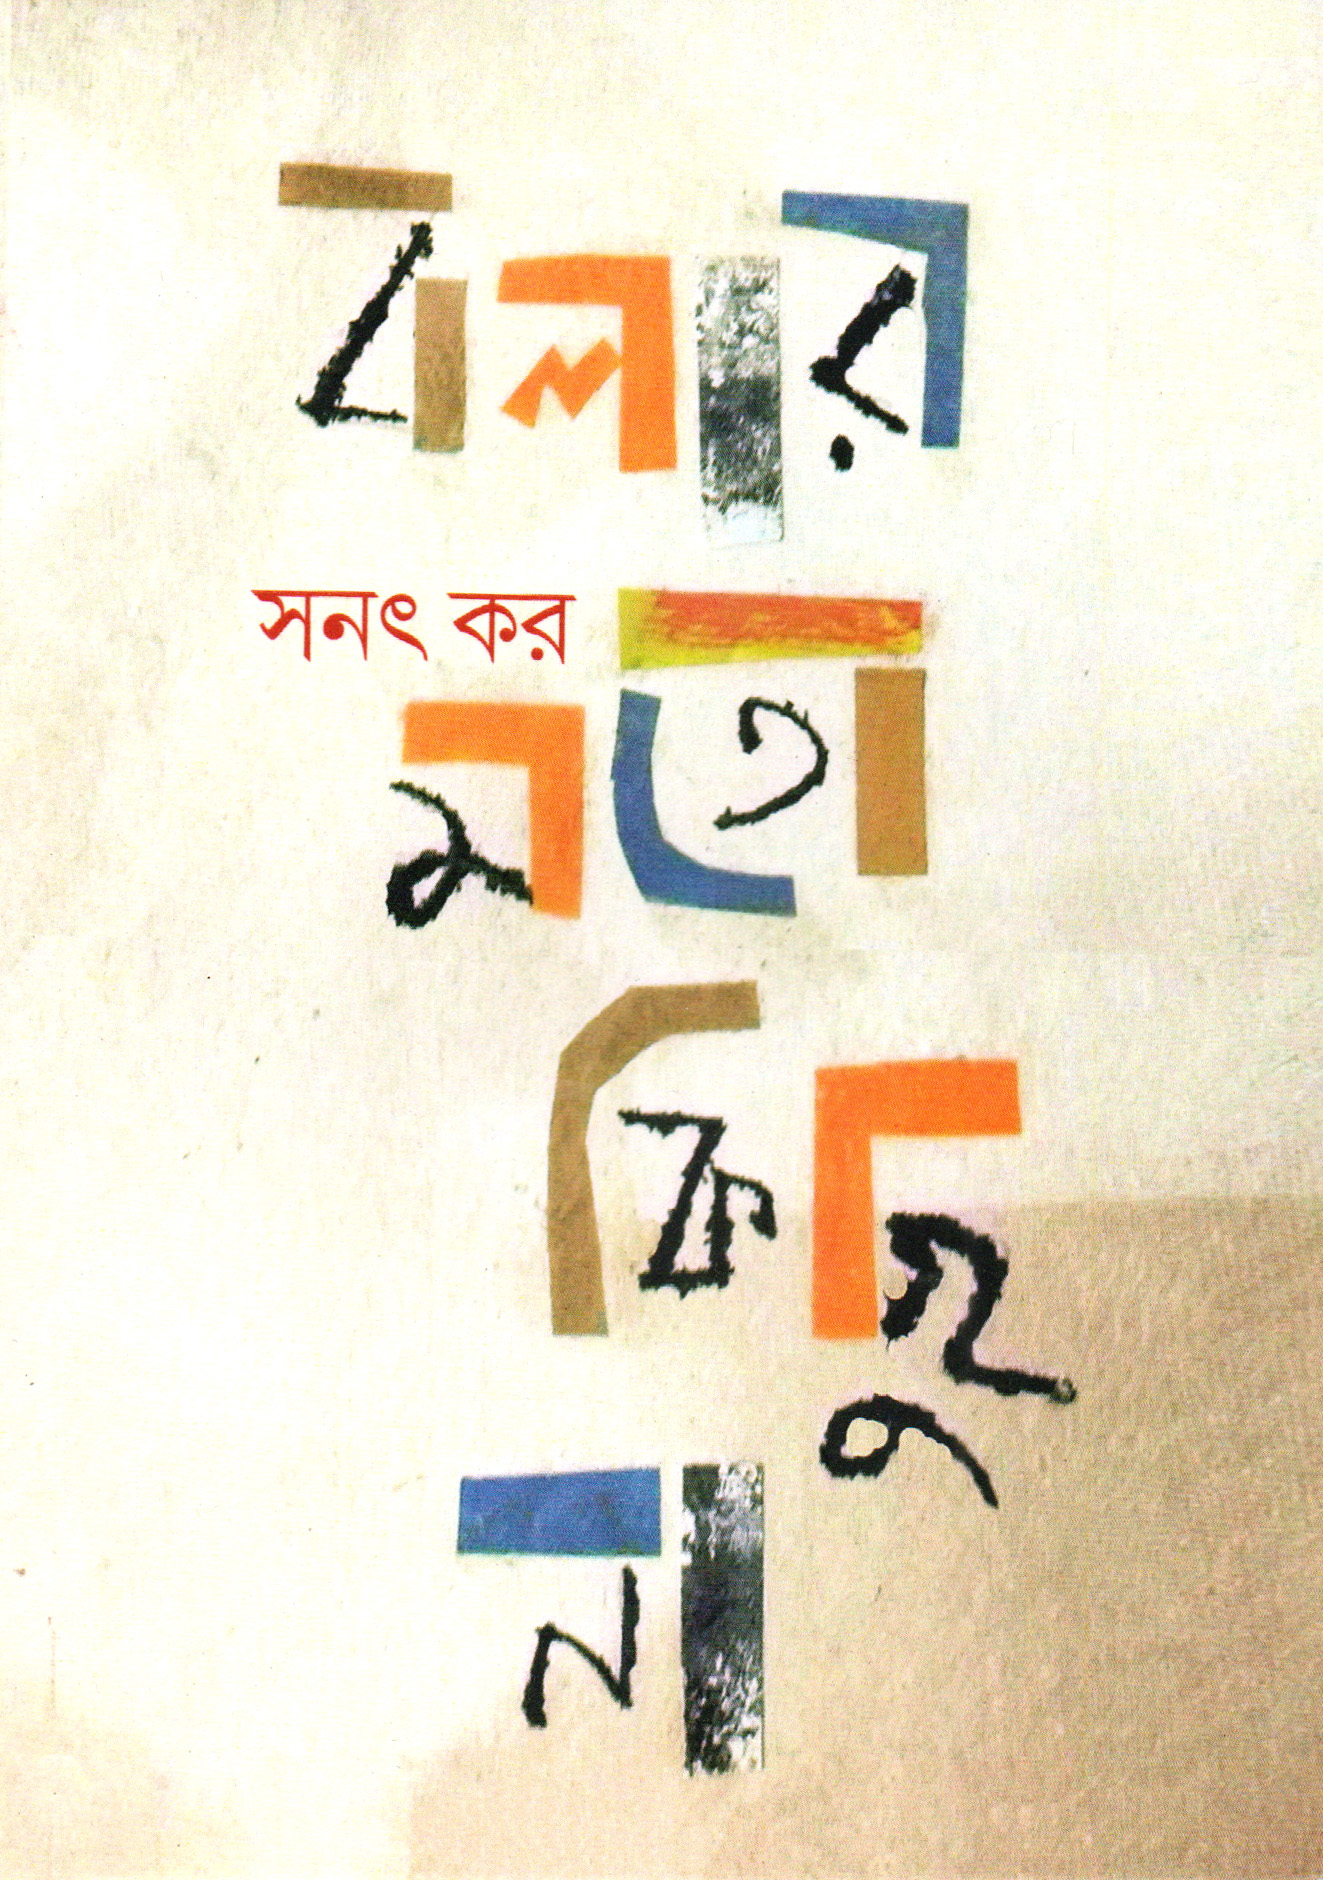 বলার
সনৎ কর
মতো
কিছু
না